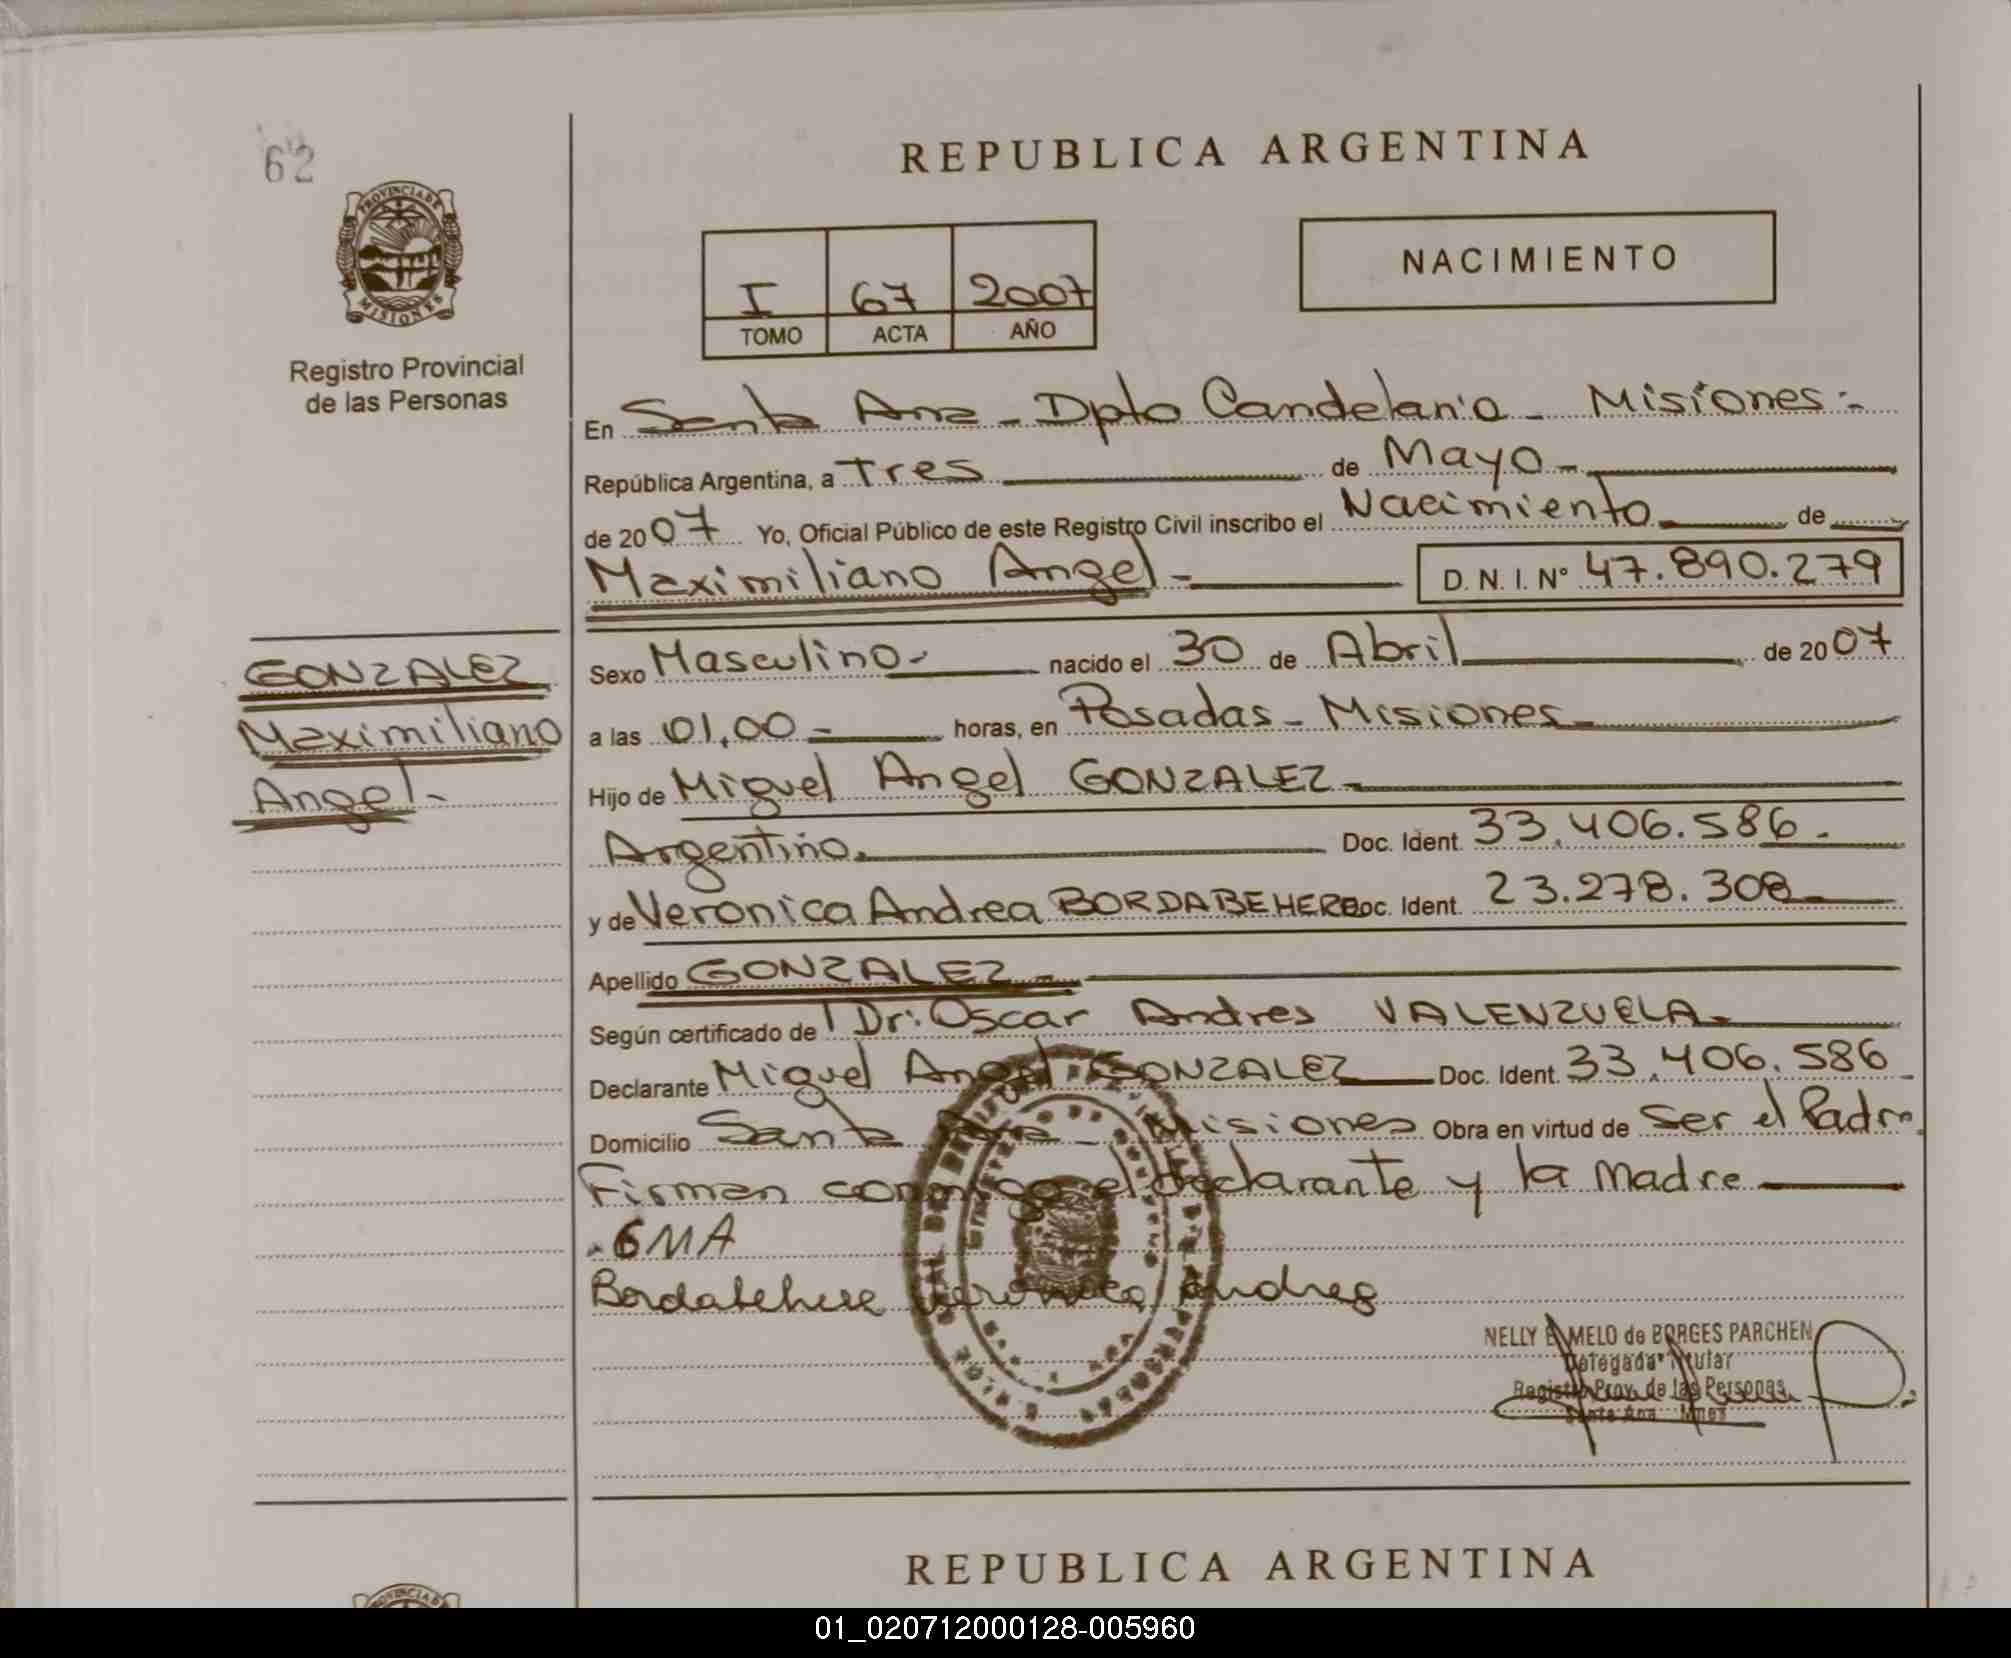 62
PROVINCIA DE
MISIONES
Registro Provincial
de las Personas
REPUBLICA ARGENTINA
I 67 2007
TOMO ACTA AÑO
NACIMIENTO
En Santa Ana - Dpto Candelaria - Misiones.-
República Argentina, a Tres de Mayo
de 2007 Yo, Oficial Público de este Registro Civil inscribo el Nacimiento de
Maximiliano Angel.- D. N. I. Nº 47.890.279
GONZALEZ
Maximiliano
Angel.-
Sexo Masculino.- nacido el 30 de Abril de 2007
a las 01,00 horas, en Posadas - Misiones
Hijo de Miguel Angel GONZALEZ
Argentino. Doc. Ident. 33.406.586.
y de Veronica Andrea BORDABEHERE Doc. Ident. 23.278.308
Apellido GONZALEZ.-
Según certificado de Dr: Oscar Andres VALENZUELA.
Declarante Miguel Angel GONZALEZ Doc. Ident. 33.406.586
Domicilio Santa Ana - Misiones Obra en virtud de Ser el Padre.
Firman conmigo el declarante y la Madre
GMA
Bordabehere Veronica Andrea
NELLY E. MELO de BORGES PARCHEN
Delegada Titular
Registro Prov. de las Personas
Santa Ana Mnes
REPUBLICA ARGENTINA
PROVINCIA DE
01_020712000128-005960